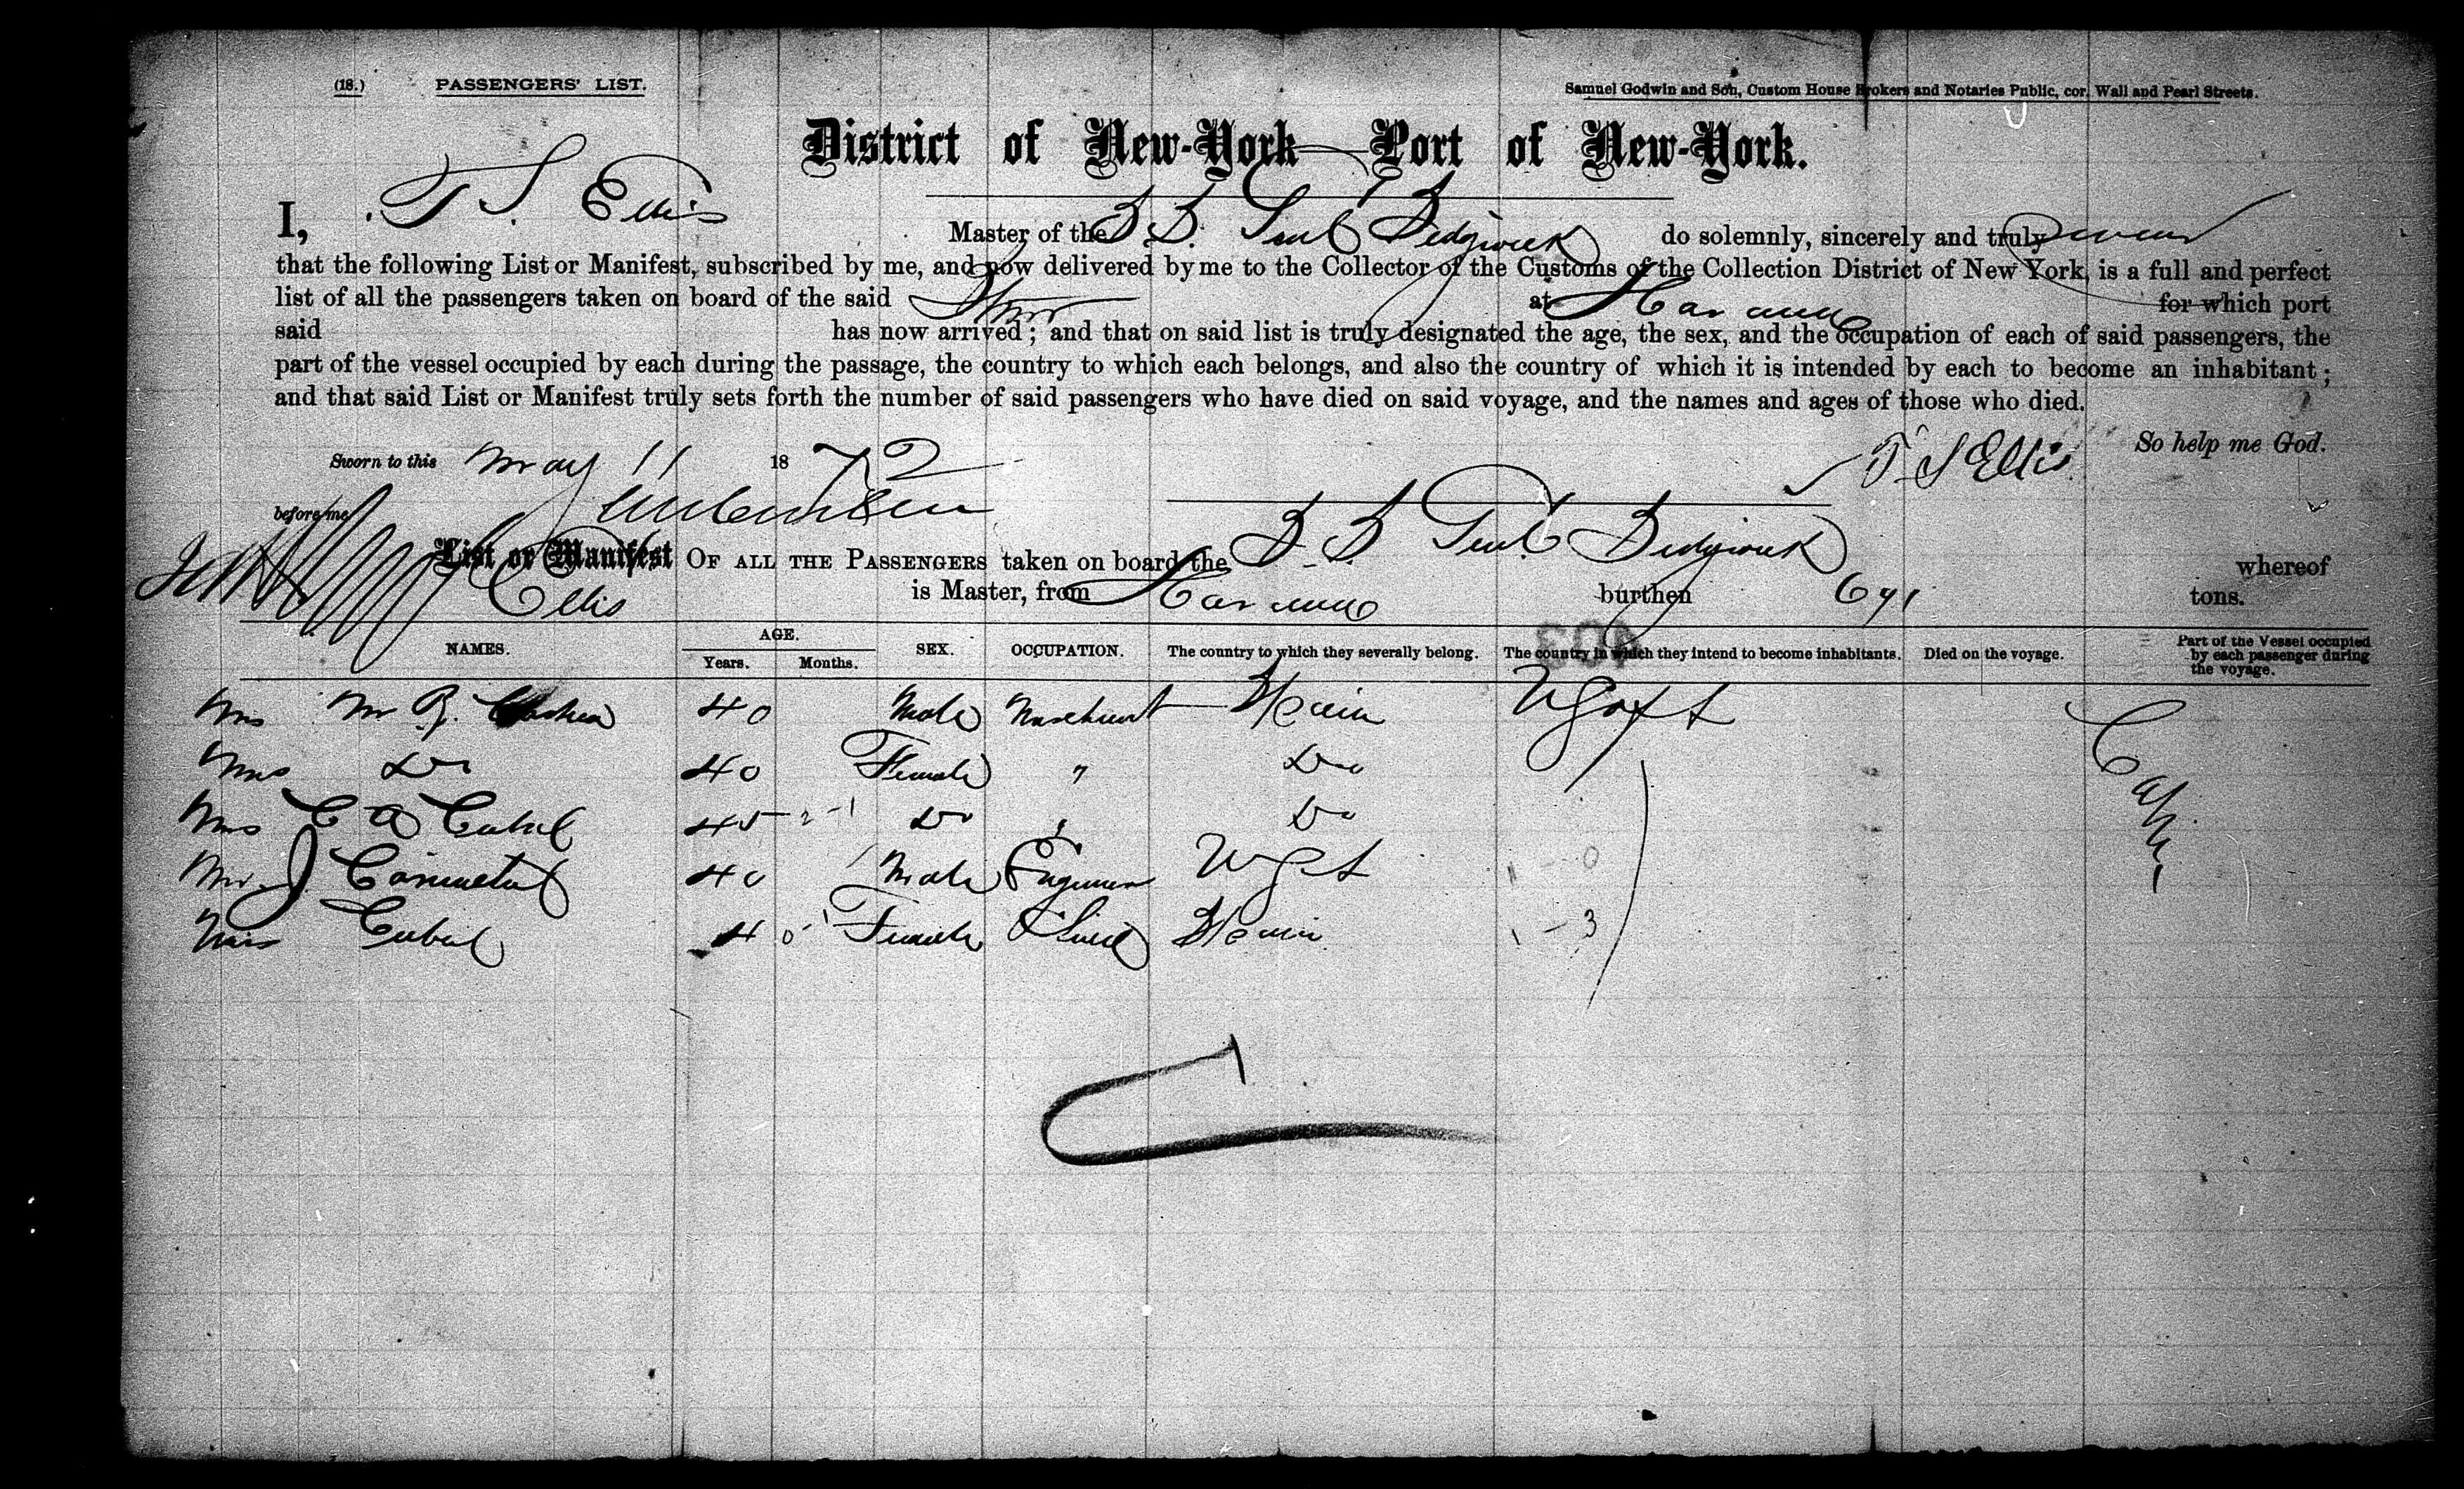 (18.) PASSENGERS' LIST. Samuel Godwin and Son, Custom House Brokers and Notaries Public, cor. Wall and Pearl Streets.
District of New-York—Port of New-York.
I, T S Ellis Master of the S.S. Genl Sedgwick do solemnly, sincerely and truly swear
that the following List or Manifest, subscribed by me, and now delivered by me to the Collector of the Customs of the Collection District of New York, is a full and perfect
list of all the passengers taken on board of the said Stmr at Havana for which port
said has now arrived; and that on said list is truly designated the age, the sex, and the occupation of each of said passengers, the
part of the vessel occupied by each during the passage, the country to which each belongs, and also the country of which it is intended by each to become an inhabitant;
and that said List or Manifest truly sets forth the number of said passengers who have died on said voyage, and the names and ages of those who died.
So help me God.
Sworn to this May 11 1872 T S Ellis
before me
List or Manifest OF ALL THE PASSENGERS taken on board the S.S. Genl Sedgwick whereof
Ellis is Master, from Havana burthen 691 tons.
403
NAMES. AGE. Years. Months. SEX. OCCUPATION. The country to which they severally belong. The country in which they intend to become inhabitants. Died on the voyage. Part of the Vessel occupied by each passenger during the voyage.
40 Male Merchant Spain Cabin
Mrs Do 40 Female " Do
Mrs C A Cabal 45 Do " Do
Mr J. 40 Male Engineer
Cabal 40 Female Spain